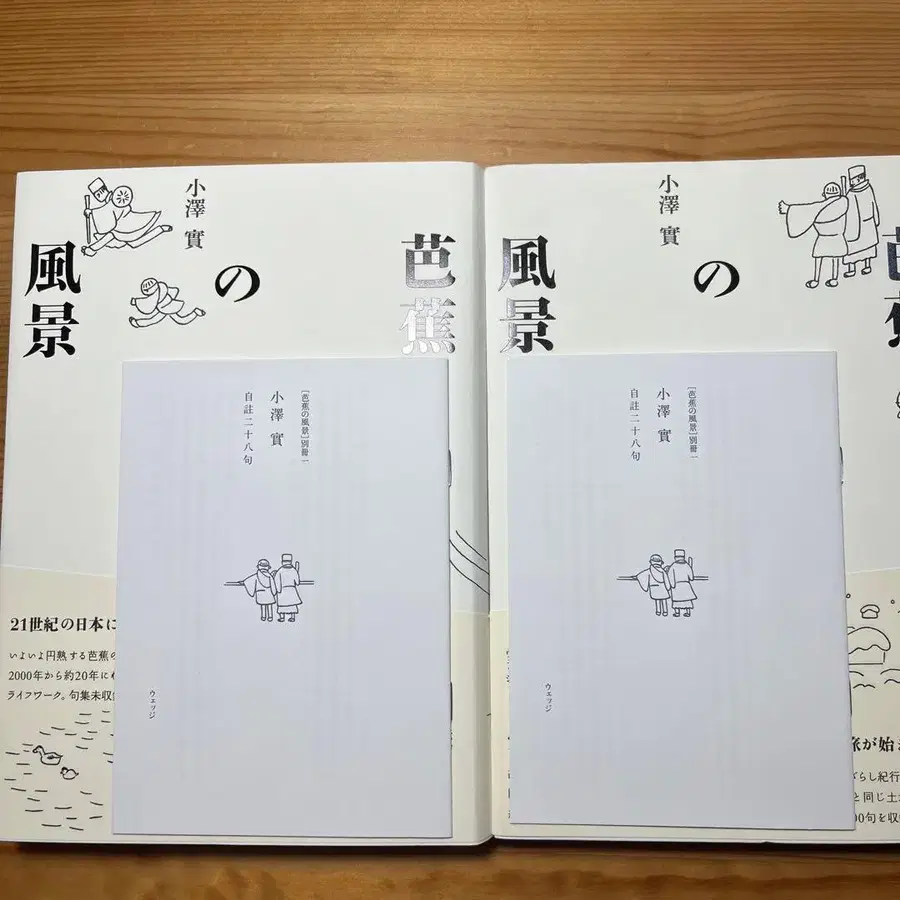 芭蕉
の
風景
小澤 實
[芭蕉の風景]別冊一
小澤 實
自註二十八句
ウェッジ
21世紀の日本に
いよいよ円熟する芭蕉の
2000年から約20年に
ライフワーク。句集未収
芭蕉
の
風景
小澤 實
[芭蕉の風景]別冊一
小澤 實
自註二十八句
ウェッジ
旅が始
らし紀行
と同じ土
00句を収